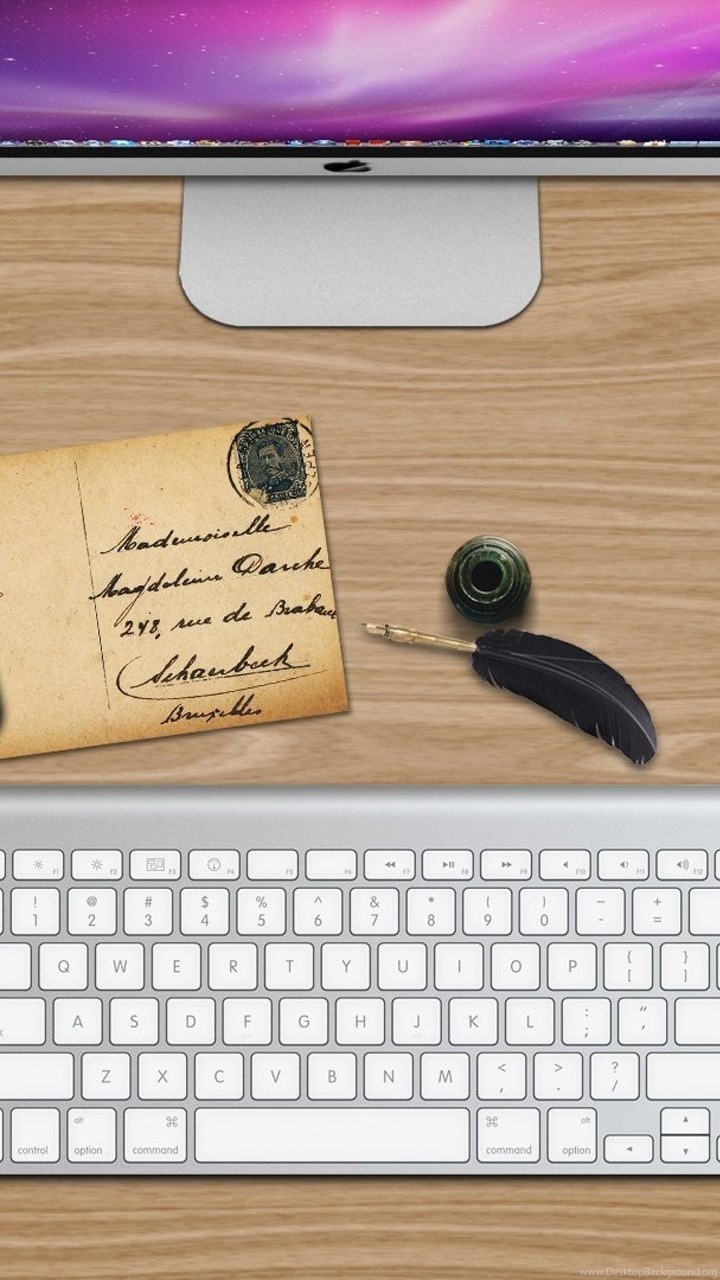 Mademoiselle
Magdeleine Darche
248, rue de Brabant
Schaerbeek
Bruxelles
F1 F2 F3 F4 F5 F6 F7 F8 F9 F10 F11 F12
! @ # $ % ^ & * ( ) – +
1 2 3 4 5 6 7 8 9 0 - =
Q W E R T Y U I O P { }
[ ]
A S D F G H J K L : "
; '
Z X C V B N M < > ?
, . /
alt ⌘ ⌘ alt
control option command command option
www.DesktopBackground.org